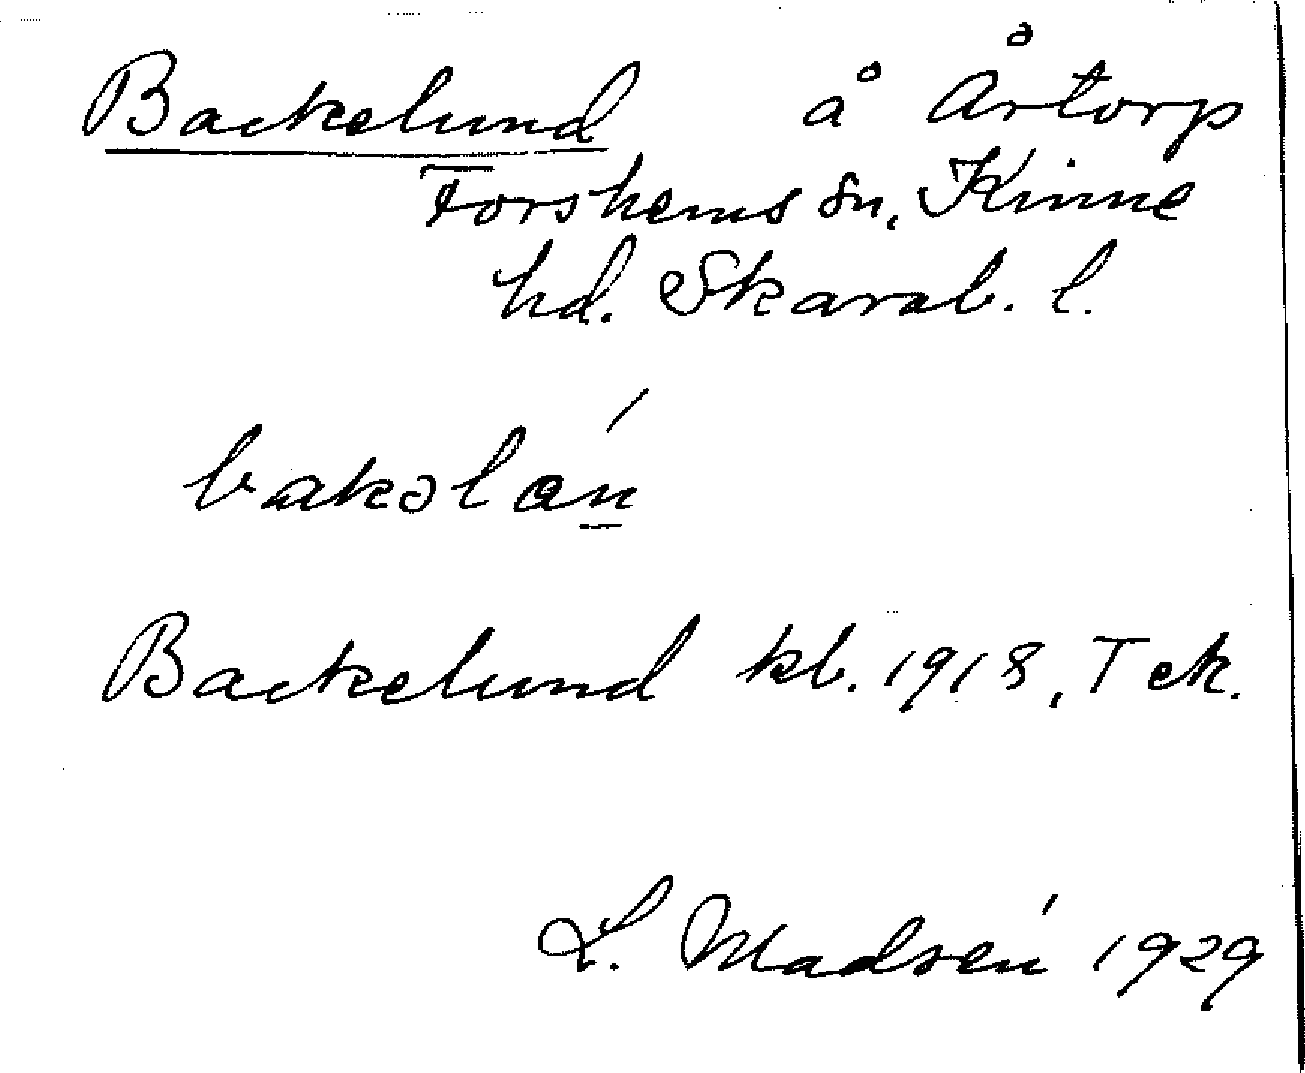 Backelund å Årtorp
Forshems sn, Kinne
hd. Skarab. l.
bakəlán
Backelund kb. 1918, T ek.
L. Madsén 1929